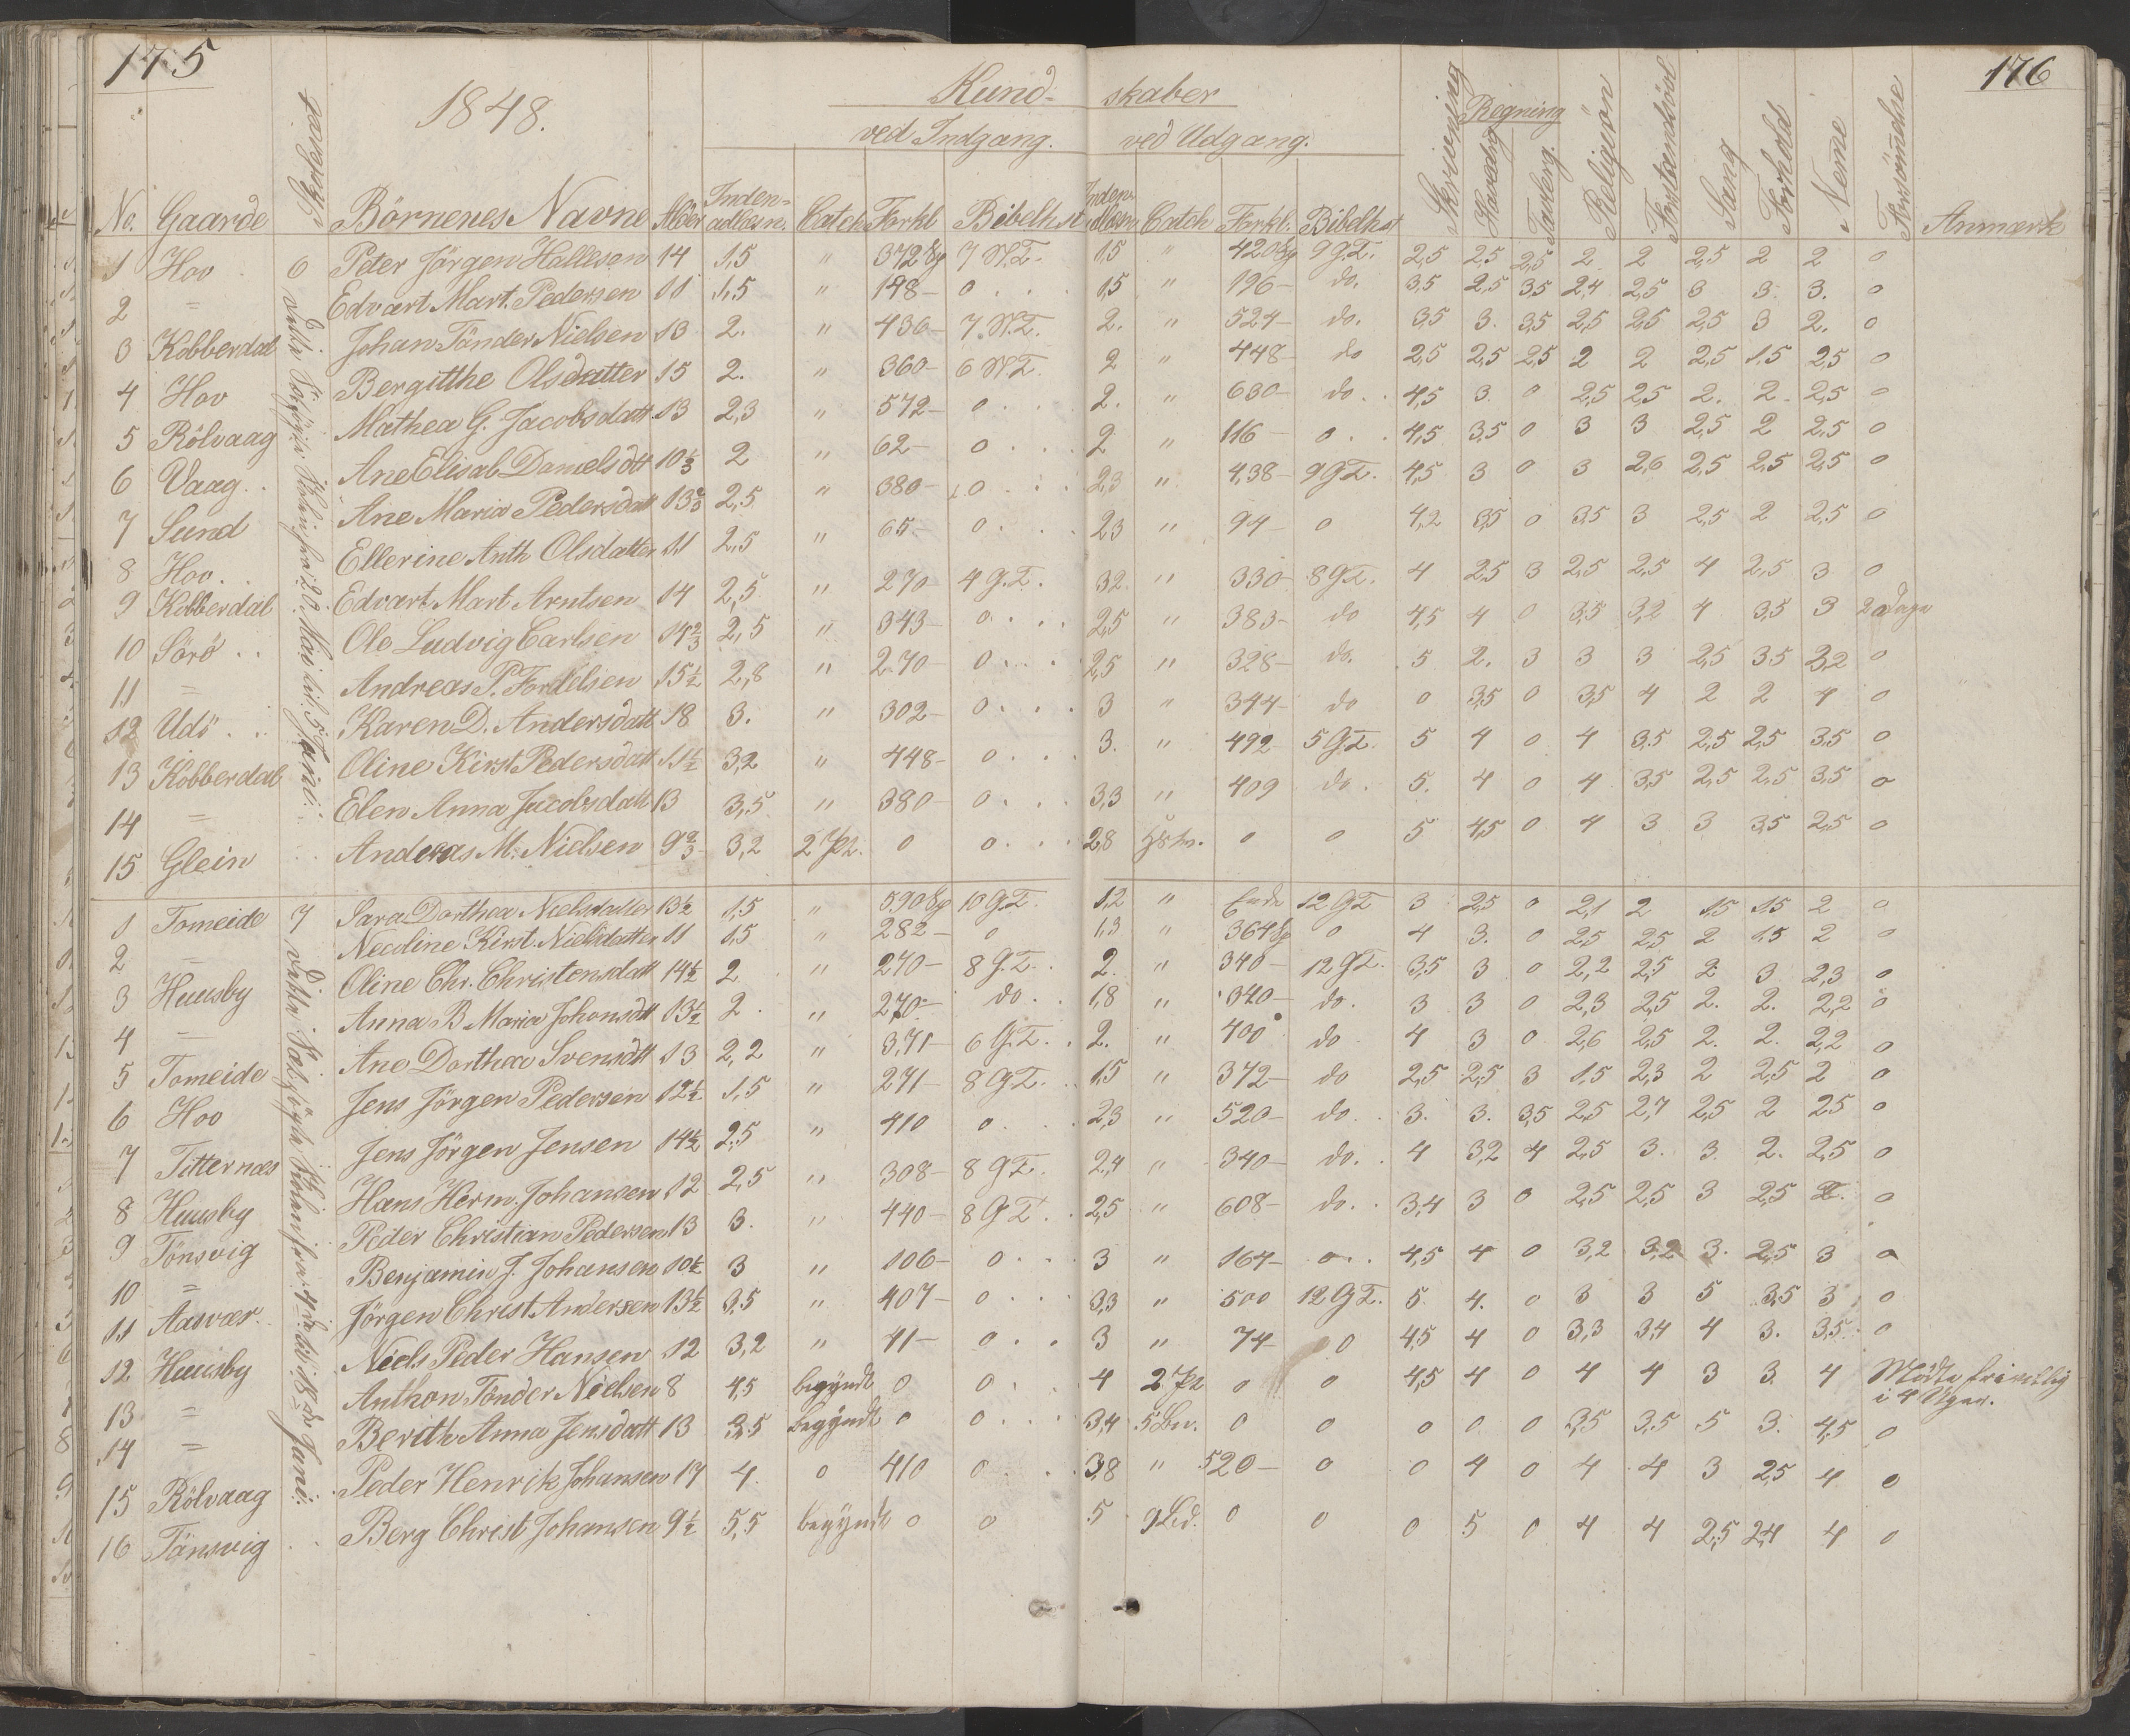 175
176
1848.
Kund- skaber
ved Indgang. ved Udgang.
Skrivning Regning Religion Forstandsövl Sang Forhold Nemme Forsömelse
Hovedreg Tavlereg.
No. Gaarde Börnenes Navne Alder Inden- adlæsn. Catch Forkl Bibelhist Inden- adlæsn Catch Forkl. Bibelhist Anmærk
1 Hov 6 Peter Jörgen Hallesen 14 1,5 " 372 Sp 7 N.T. 1,5 " 420 Sp 9 G.T. 2,5 2,5 2,5 2 2 2,5 2 2 0
2 = Edvart Mart. Pedersen 11 1,5 " 148 - 0 1,5 " 196 - do. 3,5 2,5 3,5 2,4 2,5 3 3. 3. 0
3 Kobberdal Johan Tönder Nielsen 13 2. " 436 - 7 N.T. 2. " 524 - do. 3,5 3. 3,5 2,5 2,5 2,5 3 2. 0
4 Hov Bergitthe Olsdatter 15 2. " 360 - 6 N.T. 2 " 448 - do 2,5 2,5 2,5 2 2 2,5 1,5 2,5 0
5 Rölvaag Mathea G. Jacobsdatt 13 2,3 " 572 - 0 2. " 630 - do. 4,5 3. 0 2,5 2,5 2. 2. 2,5 0
6 Vaag Ane Elisab Danielsdtt 10 1/3 2 " 62 - 0 2 " 116 - 0 4,5 3,5 0 3 3 2,5 2 2,5 0
7 Sund Ane Maria Pedersdatt 13 2/3 2,5 " 380 - 0 2,3 " 438 - 9 G.T. 4,5 3 0 3 2,6 2,5 2,5 2,5 0
8 Hov. Ellerine Anth Olsdatter 11 2,5 " 65 - 0 2,3 " 94 - 0 4,2 3,5 0 3,5 3 2,5 2 2,5 0
9 Kobberdal Edvart Mart Arntsen 14 2,5 " 270 - 4 G.T. 3,2. " 330 - 8 G.T. 4 2,5 3 2,5 2,5 4 2,5 3 0
10 Sörö Ole Ludvig Carlsen 17 2/3 2,5 " 343 - 0 2,5 " 383 - do 4,5 4 0 3,5 3,2 4 3,5 3 2 Dage
11 = Andreas P. Fordelsen 15 1/2 2,8 " 270 - 0 2,5 " 328 - do. 5 2. 3 3 3 2,5 3,5 3,2 0
12 Udö Karen D. Andersdatt 18 3. " 302 - 0 3 " 344 - do 0 3,5 0 3,5 4 2 2 4 0
13 Kobberdal Oline Kirst Pedersdatt 11 1/2 3,2 " 448 - 0 3. " 492 - 5 G.T. 5 4 0 4 3,5 2,5 2,5 3,5 0
14 = Elen Anna Jacobsdatt 13 3,5 " 380 - 0 3,3 " 409 do. 5. 4 0 4 3,5 2,5 2,5 3,5 0
15 Glein Anderas M. Nielsen 9 2/3 3,2 2 0 0 2,8 0 0 5 4,5 0 4 3 3 3,5 2,5 0
1 Tomeide 7 Sara Dorthea Nielsdatter 13 1/2 1,5 " 590 Sp 10 G.T. 1,2 " Ende 12 G.T 3 2,5 0 2,1 2 1,5 1,5 2 0
2 = Necoline Kirst. Nielsdatter 11 1,5 " 282 - 0 1,3 " 364 Sp 0 4 3. 0 2,5 2,5 2 1,5 2 0
3 Huusby Oline Chr. Christensdatt 14 1/2 2 " 270 - 8 G.T. 2. " 340 - 12 G.T. 3,5 3 0 2,2 2,5 2 3 2,3 0
4 = Anna B Maria Johansdtt 13 1/2 2 " 270 - do. 1,8 " 340 - do. 3 3 0 2,3 2,5 2. 2. 2,2 0
5 Tomeide Ane Dorthea Svensdtt 13 2,2 " 371 6 G.T. 2. " 400 do 4 3 0 2,6 2,5 2. 2. 2,2 0
6 Hov Jens Jörgen Pedersen 12 1/2 1,5 " 271 - 8 G.T. 1,5 " 372 - do 2,5 2,5 3 1,5 2,3 2 2,5 2 0
7 Titternæs Jens Jörgen Jensen 14 1/2 2,5 " 410 0 2,3 " 520 - do. 3. 3. 3,5 2,5 2,7 2,5 2 2,5 0
8 Huusby Hans Herm. Johansen 12 2,5 " 308 - 8 G.T. 2,4 " 340 - do. 4 3,2 4 2,5 3. 3. 2. 2,5 0
9 Tönsvig Peder Christian Pedersen 13 3. " 440 - 8 G.T. 2,5 " 608 - do. 3,4 3 0 2,5 2,5 3 2,5 2. 0
10 = Benjamin J. Johansen 10 1/2 3 " 106 - 0 3 " 164 - 0 4,5 4 0 3,2 3,2 3. 2,5 3 0
11 Aasvær Jörgen Christ Andersen 13 1/2 3,5 " 407 - 0 3,3 " 500 12 G.T. 5 4. 0 3 3 5 3,5 3 0
12 Huusby Niels Peder Hansen 12 3,2 " 41 - 0 3 " 74 - 0 4,5 4 0 3,3 3,4 4 3. 3,5 0
13 = Anthon Tönder Nielsen 8 4,5 begyndt 0 0 4 2 0 0 4,5 4 0 4 4 3 3. 4 Mödte frivillig
i 4 Uger.
14 = Berith Anna Jensdatt 13 3,5 begyndt 0 0 3,4 5 0 0 0 0 0 3,5 3,5 5 3. 4,5 0
15 Rölvaag Peder Henrik Johansen 17 4. 0 410 0 3,8 " 520 - 0 0 4 0 4 4 3 2,5 4 0
16 Tönsvig Berg Christ Johansen 9 1/2 5,5 begyndt 0 0 5 9 Led. 0 0 0 5 0 4 4 2,5 2,4 4 0